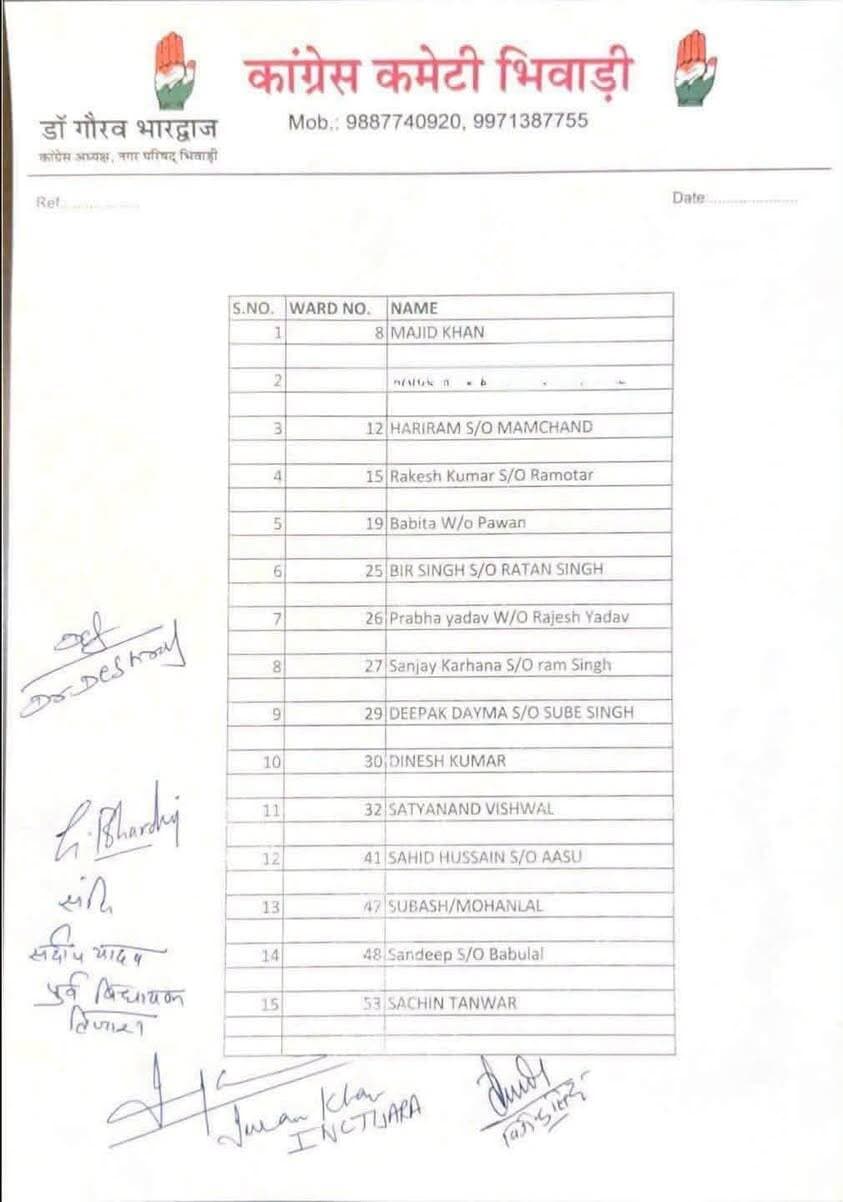 कांग्रेस कमेटी भिवाड़ी
Mob.: 9887740920, 9971387755
डॉ गौरव भारद्वाज
कांग्रेस अध्यक्ष, नगर परिषद् भिवाड़ी
Ref:..................
Date:......................
S.NO. WARD NO. NAME
1 8 MAJID KHAN
2
3 12 HARIRAM S/O MAMCHAND
4 15 Rakesh Kumar S/O Ramotar
5 19 Babita W/o Pawan
6 25 BIR SINGH S/O RATAN SINGH
7 26 Prabha yadav W/O Rajesh Yadav
8 27 Sanjay Karhana S/O ram Singh
9 29 DEEPAK DAYMA S/O SUBE SINGH
10 30 DINESH KUMAR
11 32 SATYANAND VISHWAL
12 41 SAHID HUSSAIN S/O AASU
13 47 SUBASH/MOHANLAL
14 48 Sandeep S/O Babulal
15 53 SACHIN TANWAR
संदीप यादव
पूर्व विधायक
तिजारा
Imran Khan
INC TIJARA